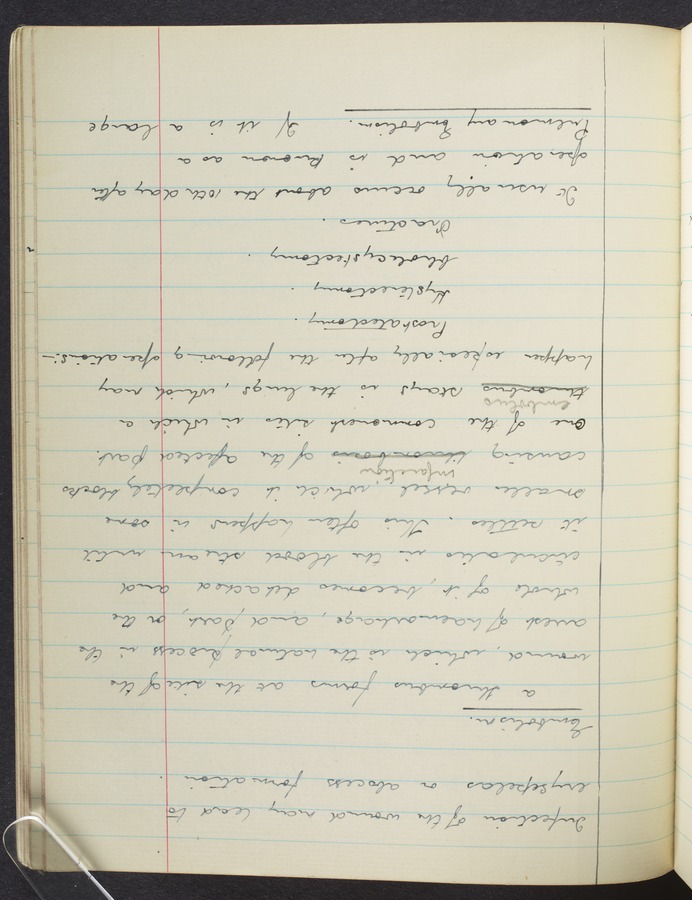 Infection of the wound may lead to
erysipelas or abscess formation.
Embolism.
a thrombus forms at the site of the
wound, which is the natural process in the
arrest of haemorrhage, and part, or the
whole of it, becomes detached and
circulates in the blood stream until
it settles. This often happens in some
smaller vessel, which it completely blocks
infarction
causing thrombosis of the affected part.
One of the commonest sites in which a
embolus
thrombus stays is the lungs, which may
happen especially after the following operations:-
Prostatectomy.
Hysterectomy.
Cholecystectomy.
Fractures.
It usually occurs about the 10th day after
operation and is known as a
Pulmonary Embolism. If it is a large